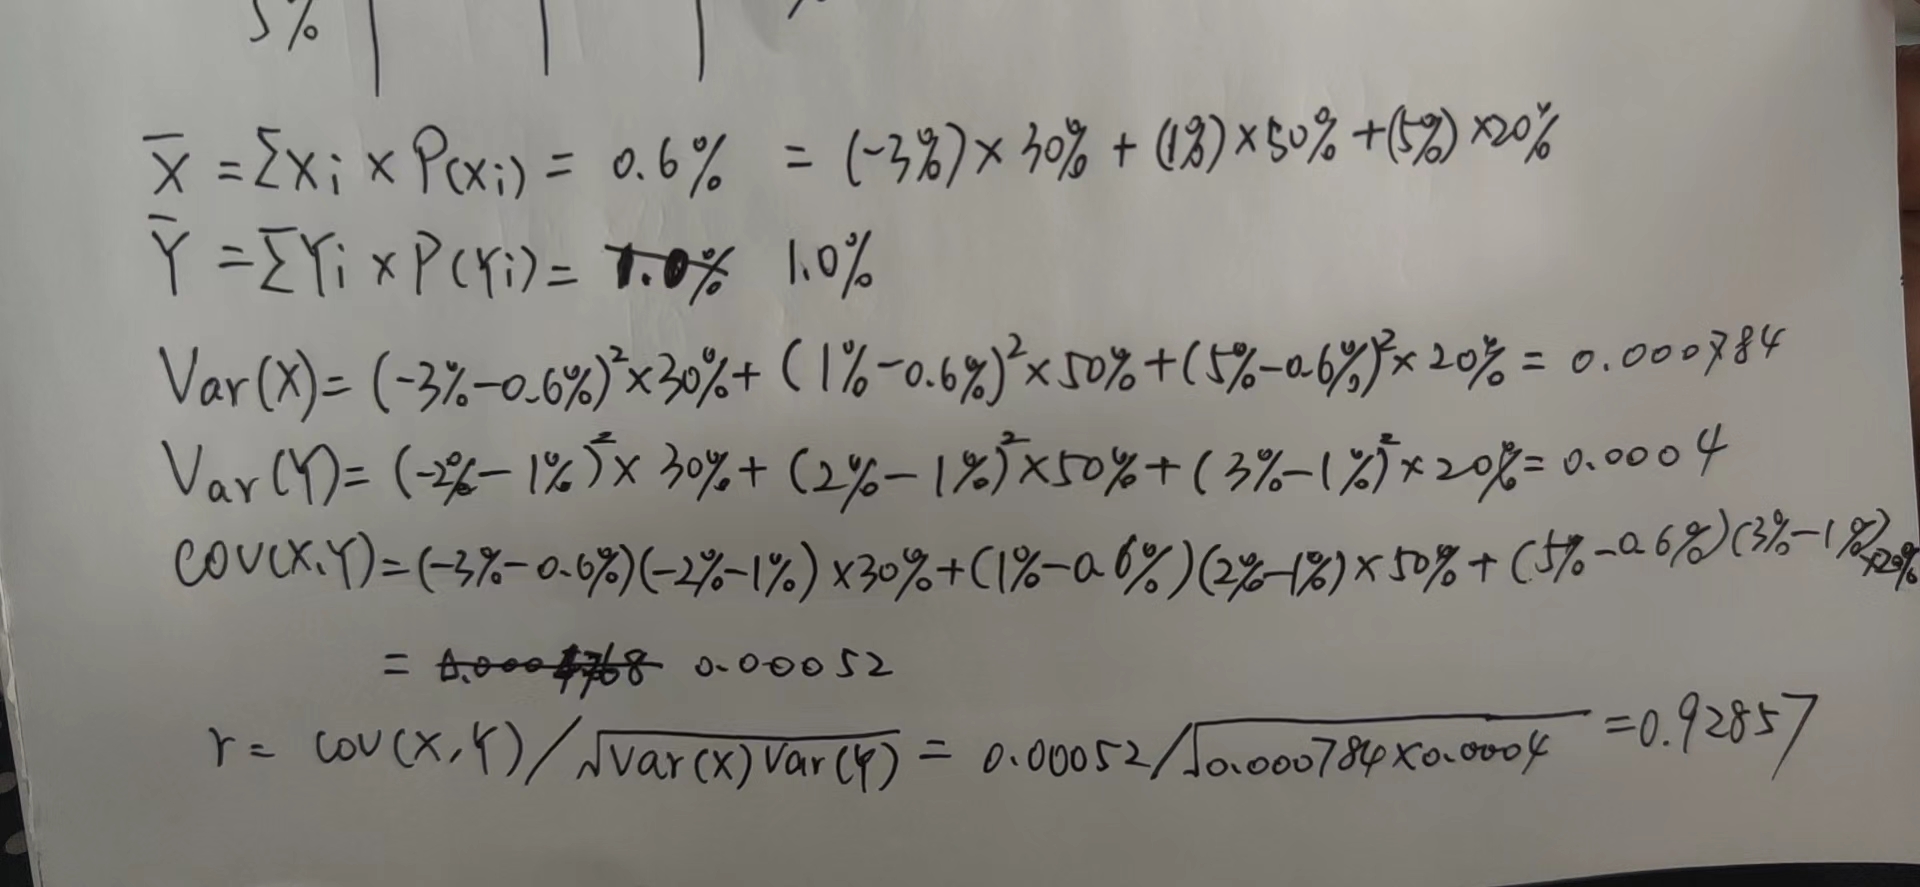 5%
X̄ = ΣXi × P(Xi) = 0.6% = (-3%) × 30% + (1%) × 50% + (5%) × 20%
Ȳ = ΣYi × P(Yi) = 1.0% 1.0%
Var(X) = (-3%-0.6%)² × 30% + (1%-0.6%)² × 50% + (5%-0.6%)² × 20% = 0.000784
Var(Y) = (-2%-1%)² × 30% + (2%-1%)² × 50% + (3%-1%)² × 20% = 0.0004
COV(X,Y) = (-3%-0.6%)(-2%-1%) × 30% + (1%-0.6%)(2%-1%) × 50% + (5%-0.6%)(3%-1%) × 20%
= 0.00052
r = cov(X,Y) / √Var(X) Var(Y) = 0.00052 / √0.000784 × 0.0004 = 0.92857